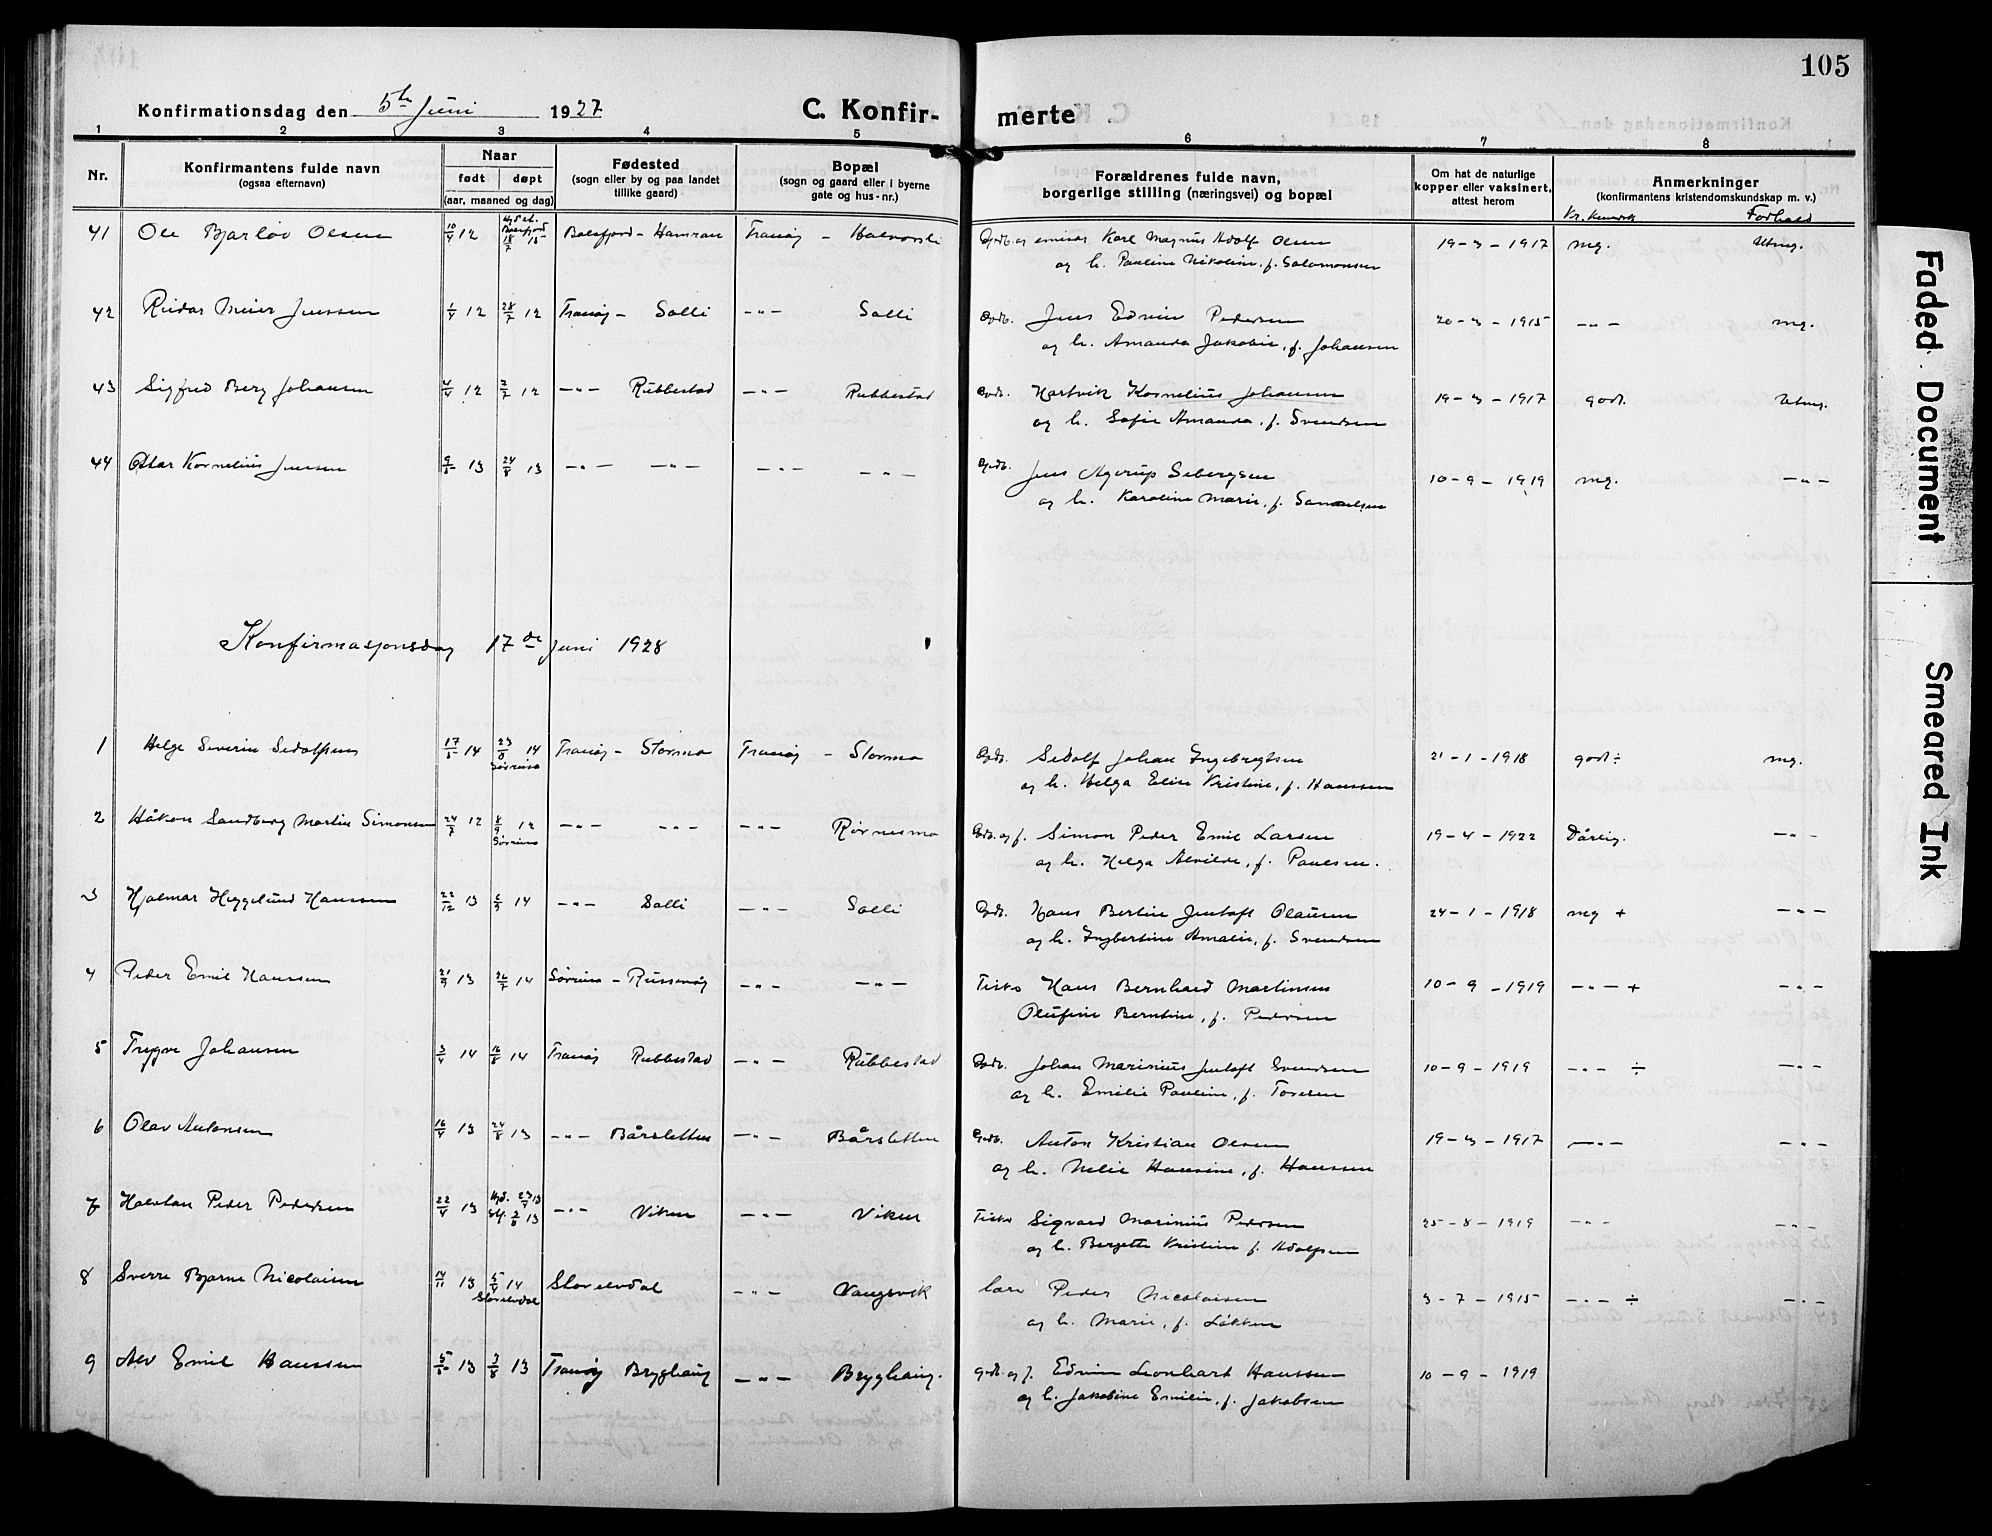 105
Konfirmationsdag den 5te Juni 1927
C. Konfir- merte
1 2 3 4 5 6 7 8
Nr.
Konfirmantens fulde navn
(ogsaa efternavn)
Naar
født døpt
(aar, maaned og dag)
Fødested
(sogn eller by og paa landet
tillike gaard)
Bopæl
(sogn og gaard eller i byerne
gate og hus-nr.)
Forældrenes fulde navn,
borgerlige stilling (næringsvei) og bopæl
Om hat de naturlige
kopper eller vaksinert,
attest herom
Anmerkninger
(konfirmantens kristendomskundskap m. v.)
Kr. kunnsk Forhold
41 Ole Bjarlov Olsen 10/4 12 18/7 Balsfjord - Hamran Tranøy - Gdb. og Karl Magnus Adolf Olsen 19-3-1917 mg. Utmg.
og h. Pauline Nikoline, f. Salomonsen
42 Reidar Meier Jenssen 1/4 12 28/7 12 Tranøy - Solli -"- Solli Gdb. Jens Edvin Pedersen 20-3-1915 -"- mg.
og h. Amanda Jakobie, f. Johansen
43 Sigfred Berg Johansen 4/4 12 12 -"- Rubbestad -"- Rubbestad Gdb. Hartvik Kornelius Johansen 19-3-1917 godt. Utmg.
og h. Sofie Amanda, f. Svendsen
44 Otlar Kornelius Jensen 9/5 13 24/8 13 -"- -"- -"- -"- Gdb. Jens Agerup Sebergsen 10-9-1919 mg. -"-
og h. Karoline Marie, f. Samuelsen
Konfirmasjonsdag 17de juni 1928
1 Helge Severin Sedolfsen 17/5 14 23/8 14 Tranøy - Stormo Tranøy - Stormo Gdb. Sedolf Johan Ingebregtsen 21-1-1918 godt ÷ mg.
Sørreisa
og h. Helga Elise Kristine, f. Hanssen
2 Håkon Sandberg Martin Simonsen 24/7 12 8/9 12 -"- -"- -"- Rørnesmo Gdb. og f. Simon Peder Emil Larsen 19-4-1922 Dårlig. -"-
Sørreisa
og h. Helga Alvilde, f. Paulsen.
3 Hjalmar Heggelund Hanssen 22/12 13 14 -"- Solli -"- Solli Gdb. Hans Bertin Jentoft Olausen 24-1-1918 mg + -"-
og h. Ingbertine Amalie, f. Svendsen
4 Peder Emil Hanssen 21/9 13 26/7 14 Sørreisa - Russevåg -"- -"- Fisker Hans Bernhard Martinsen 10-9-1919 -"- + -"-
Olufine Berntine, f. Pedersen
5 Trygve Johansen 3/4 14 16/8 14 Tranøy Rubbestad -"- Rubbestad Gdb. Johan Marinius Jentoft Svendsen 10-9-1919 -"- ÷ -"-
og h. Emilie Pauline, f. Tosesen
6 Olav Antonsen 16/4 13 24/8 13 -"- Bårsletten -"- Bårsletten Gdb. Anton Kristian Olsen 19-3-1917 -"- -"-
og h. Nelie Hansine, f. Hanssen
7 Halvdan Peder Pedersen 22/4 13 Hjd. 23/4 13 -"- Viken -"- Viken Fisker Sigvard Marinius Pedersen 25-8-1919 -"- -"-
3/8 13
og h. Bergette Kristine f. Adolfsen
8 Sverre Bjarne Nicolaisen 14/11 13 5/4 14 Storelvdal -"- Vangsvik lærer Peder Nicolaisen 3-7-1915 -"- ÷ -"-
Storelvdal
og h. Marie, f. Løkken
9 Alv Emil Hanssen 5/5 13 3/8 13 Tranøy Bryghaug -"- Bryghaug. gdb. og f. Edvin Leonhart Hanssen 10-9-1919
og h. Jakobine Emilie, f. Jakobsen
Faded Document
Smeared Ink